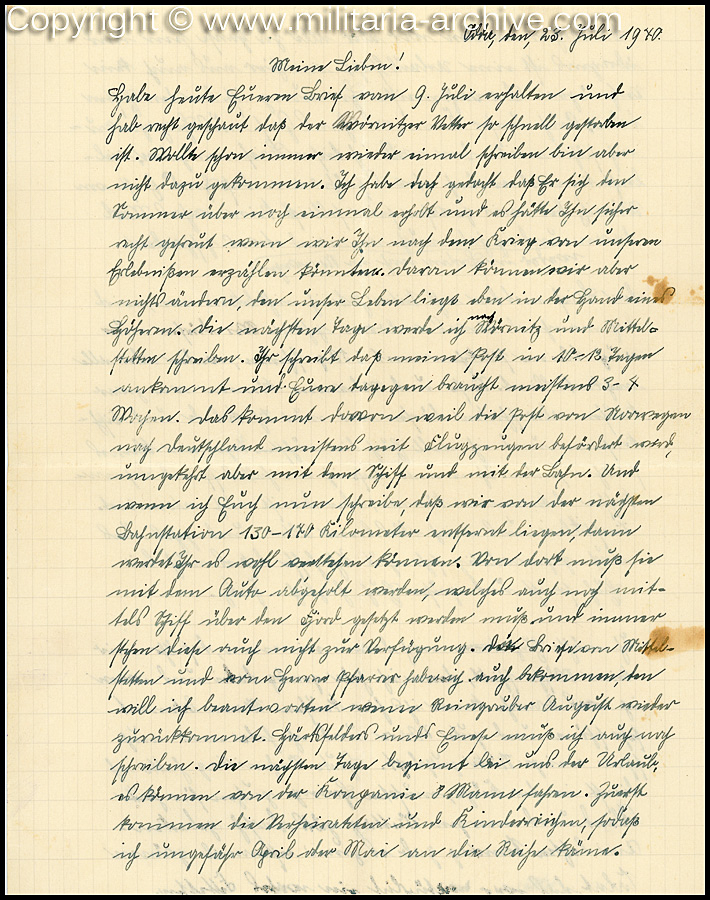 Copyright © www.militaria-archive.com
den, 25. Juli 1940.
Meine Lieben!
Habe heute Eueren Brief vom 9. Juli erhalten und
hab recht geschaut daß der Wörnitzer Vetter so schnell gestorben
ist. Wollte schon immer wieder einmal schreiben bin aber
nicht dazu gekommen. Ich habe doch gedacht daß Er sich den
Sommer über noch einmal erholt und es hätte Ihn sicher
recht gefreut wenn wir Ihn nach dem Krieg von unseren
Erlebnißen erzählen könnten. Daran können wir aber
nichts ändern den unser Leben liegt eben in der Hand eines
Höheren. Die nächsten Tage werde ich nach Wörnitz und Mittel-
stetten schreiben. Ihr schreibt daß meine Post in 10-13 Tagen
ankommt und Euere dagegen braucht meistens 3-4
Wochen. Das kommt davon weil die Post von Norwegen
nach Deutschland meistens mit Flugzeugen befördert wird,
umgekehrt aber mit dem Schiff und mit der Bahn. Und
wenn ich Euch nun schreibe, daß wir von der nächsten
Bahnstation 130-140 Kilometer entfernt liegen, dann
werdet Ihr es wohl verstehen können. Von dort muß sie
mit dem Auto abgeholt werden, welches auch noch mit-
tels Schiff über den Fjord gesetzt werden muß und immer
stehen diese auch nicht zur Verfügung. Die Briefe von Mittel-
stetten und vom Herrn Pfarrer habe ich auch bekommen, den
will ich beantworten wenn Reingruber August wieder
zurückkommt. Härtsfelders und muß ich auch noch
schreiben. Die nächsten Tage beginnt bei uns der Urlaub,
es können von der Kompanie 8 Mann fahren. Zuerst
kommen die Verheirateten und Kinderreichen, sodaß
ich ungefähr April oder Mai an die Reihe käme.